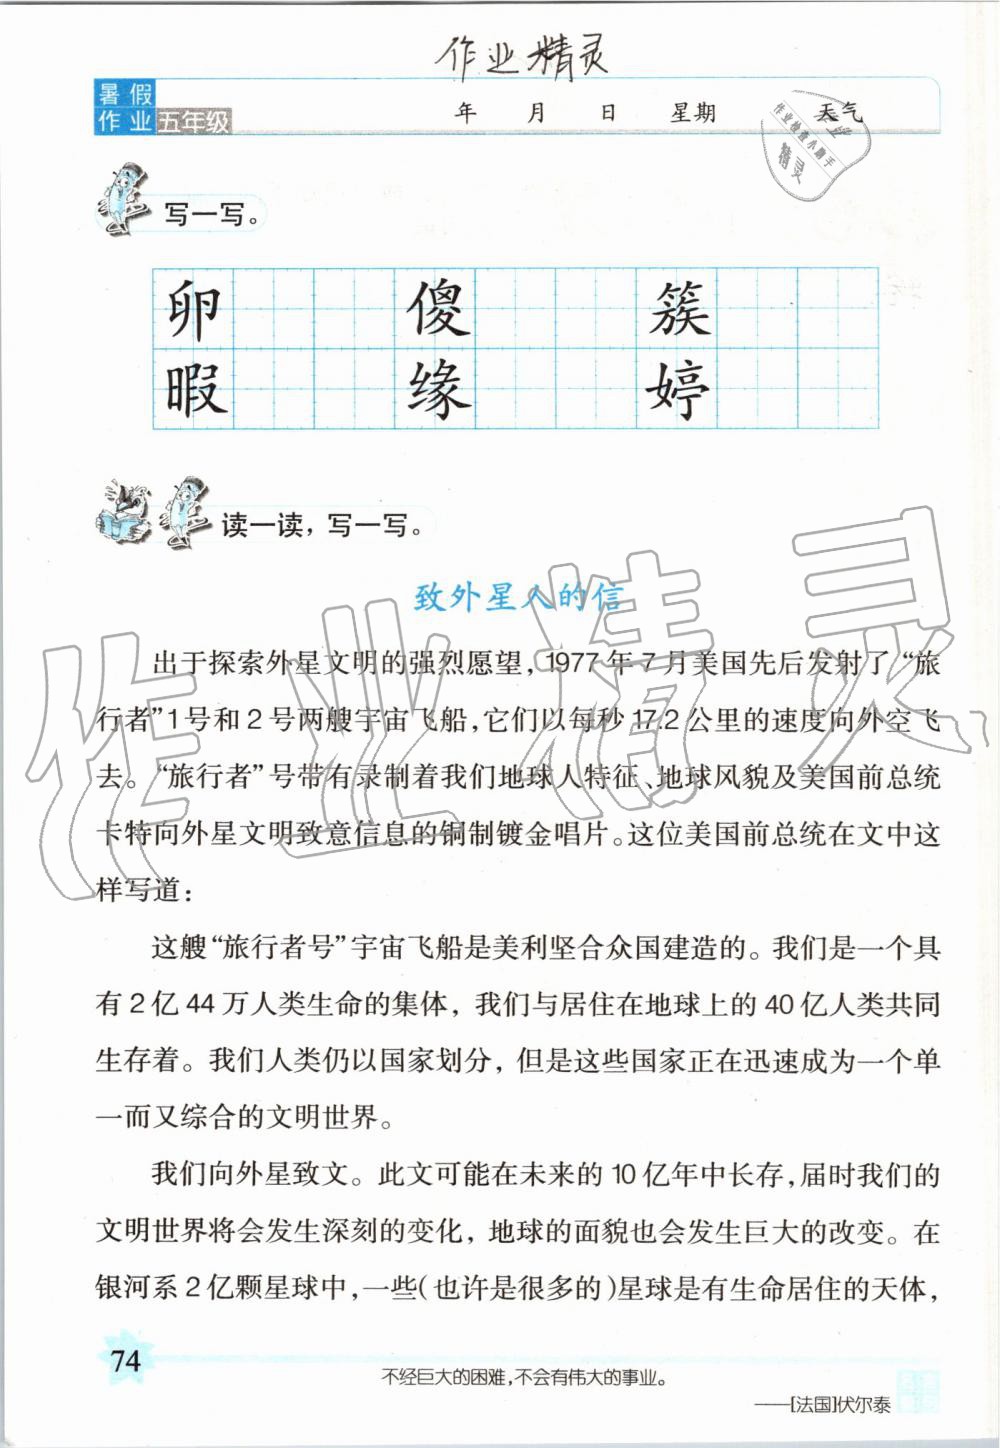 作业精灵
暑假
作业 五年级
年 月 日 星期 天气
作业
作业检查小助手
精灵
写一写。
卵 傻 簇
暇 缘 婷
读一读，写一写。
致外星人的信
出于探索外星文明的强烈愿望，1977年7月美国先后发射了“旅
行者”1号和2号两艘宇宙飞船，它们以每秒17.2公里的速度向外空飞
去。“旅行者”号带有录制着我们地球人特征、地球风貌及美国前总统
卡特向外星文明致意信息的铜制镀金唱片。这位美国前总统在文中这
样写道：
这艘“旅行者号”宇宙飞船是美利坚合众国建造的。我们是一个具
有2亿44万人类生命的集体，我们与居住在地球上的40亿人类共同
生存着。我们人类仍以国家划分，但是这些国家正在迅速成为一个单
一而又综合的文明世界。
我们向外星致文。此文可能在未来的10亿年中长存，届时我们的
文明世界将会发生深刻的变化，地球的面貌也会发生巨大的改变。在
银河系2亿颗星球中，一些（也许是很多的）星球是有生命居住的天体，
作业精灵
74
不经巨大的困难，不会有伟大的事业。
——[法国]伏尔泰